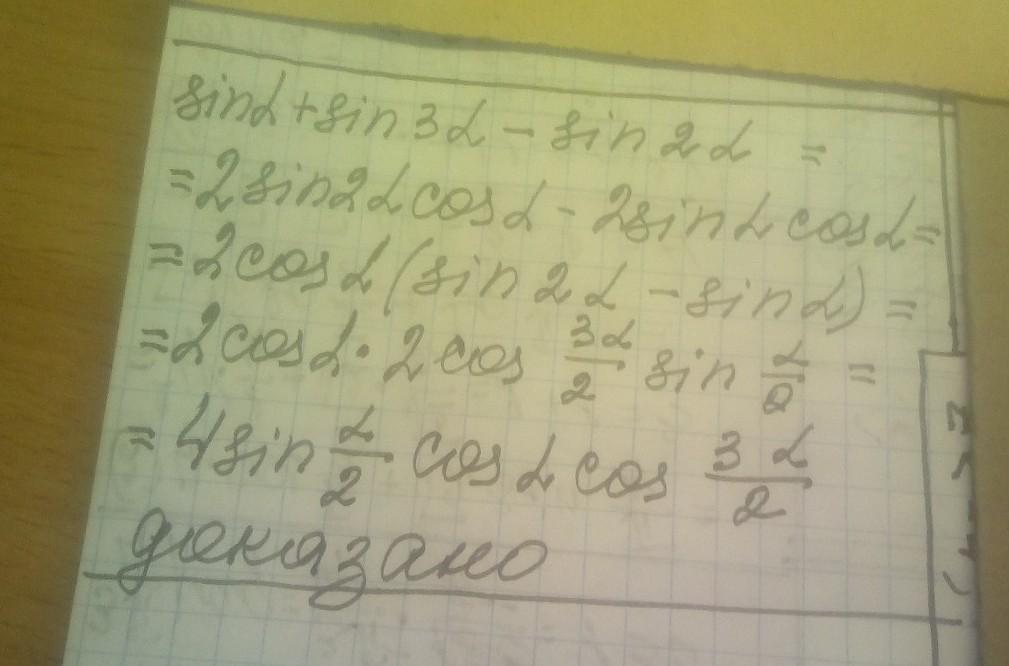 sinα + sin 3α − sin 2α =
= 2 sin 2α cos α − 2 sin α cos α =
= 2 cos α (sin 2α − sin α) =
= 2 cos α · 2 cos 3α/2 sin α/2 =
= 4 sin α/2 cos α cos 3α/2
доказано